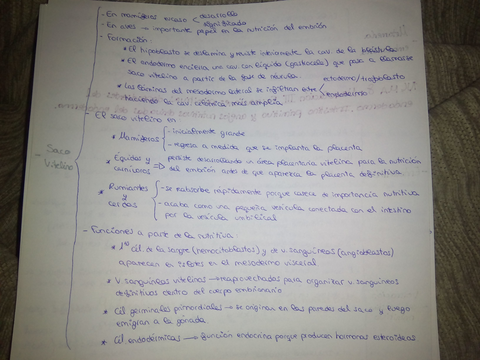 - En mamíferos escaso < desarrollo
significado
- En aves → importante papel en la nutrición del embrión
- Formación:
* El hipoblasto se deslamina y reviste interiormente la cav. de la blástula
* El endodermo encierra una cav. con líquido (gastrocele) que pasa a llamarse
saco vitelino a partir de la fase de
* Las láminas del mesodermo lateral se infiltran entre < ectodermo/trofoblasto
endodermo
haciendo la cav. celómica más amplia
- El saco vitelino en
* Mamíferos - inicialmente grande
- regresa a medida que se implanta la placenta
* Équidos y carnívoros => persiste desarrollando un área placentaria vitelina para la nutrición
del embrión antes de que aparezca la placenta definitiva
* Rumiantes y cerdas - se reabsorbe rápidamente porque carece de importancia nutritiva
- acaba como una pequeña vesícula conectada con el intestino
por la vesícula umbilical
- Saco Vitelino
- Funciones a parte de la nutritiva
* 1ª cél de la sangre (hemocitoblastos) y de v. sanguíneas (angioblastos)
aparecen la islotes en el mesodermo visceral
* V. sanguíneas vitelinas → reaprovechados para organizar v. sanguíneos
definitivos dentro del cuerpo embrionario
* Cél germinales primordiales → se originan en las paredes del saco y luego
emigran a la gónada
* Cél endodérmicas → función endocrina porque producen hormonas esteroideas